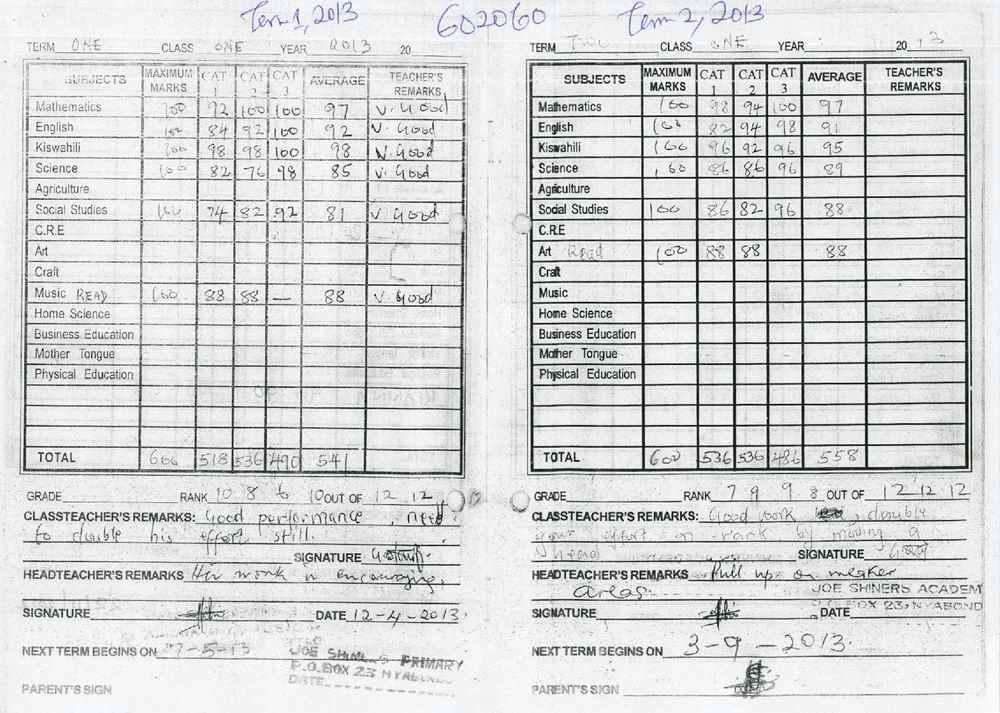 Term 1, 2013 602060 Term 2, 2013
TERM ONE CLASS ONE YEAR 2013 20
SUBJECTS MAXIMUM MARKS CAT 1 CAT 2 CAT 3 AVERAGE TEACHER'S REMARKS
Mathematics 100 92 100 100 97 V. Good
English 100 84 92 100 92 V. Good
Kiswahili 100 98 98 100 98 V. Good
Science 100 82 76 98 85 V. Good
Agriculture
Social Studies 100 74 82 92 81 V Good
C.R.E
Art
Craft
Music READ 100 88 88 — 88 V. Good
Home Science
Business Education
Mother Tongue
Physical Education
TOTAL 600 518 536 490 541
GRADE RANK 10 8 to 10 OUT OF 12 12
CLASSTEACHER'S REMARKS: Good performance, need
to double his effort still.
SIGNATURE
HEADTEACHER'S REMARKS Her work is encouraging.
SIGNATURE DATE 12-4-2013.
NEXT TERM BEGINS ON 7-5-13
JOE SHINERS PRIMARY
P.O.BOX 23 NYABONDO
DATE
PARENT'S SIGN
TERM TWO CLASS ONE YEAR 20 13
SUBJECTS MAXIMUM MARKS CAT 1 CAT 2 CAT 3 AVERAGE TEACHER'S REMARKS
Mathematics 100 98 94 100 97
English 100 82 94 98 91
Kiswahili 100 96 92 96 95
Science 100 86 86 96 89
Agriculture
Social Studies 100 86 82 96 88
C.R.E
Art Read 100 88 88 88
Craft
Music
Home Science
Business Education
Mother Tongue
Physical Education
TOTAL 600 536 536 486 558
GRADE RANK 7 9 9 8 OUT OF 12 12 12
CLASSTEACHER'S REMARKS: Good work, double
your effort on rank by moving a
head SIGNATURE
HEADTEACHER'S REMARKS Pull up on weaker
areas. JOE SHINERS ACADEM
BOX 23, NYABOND
SIGNATURE DATE
NEXT TERM BEGINS ON 3-9-2013.
PARENT'S SIGN